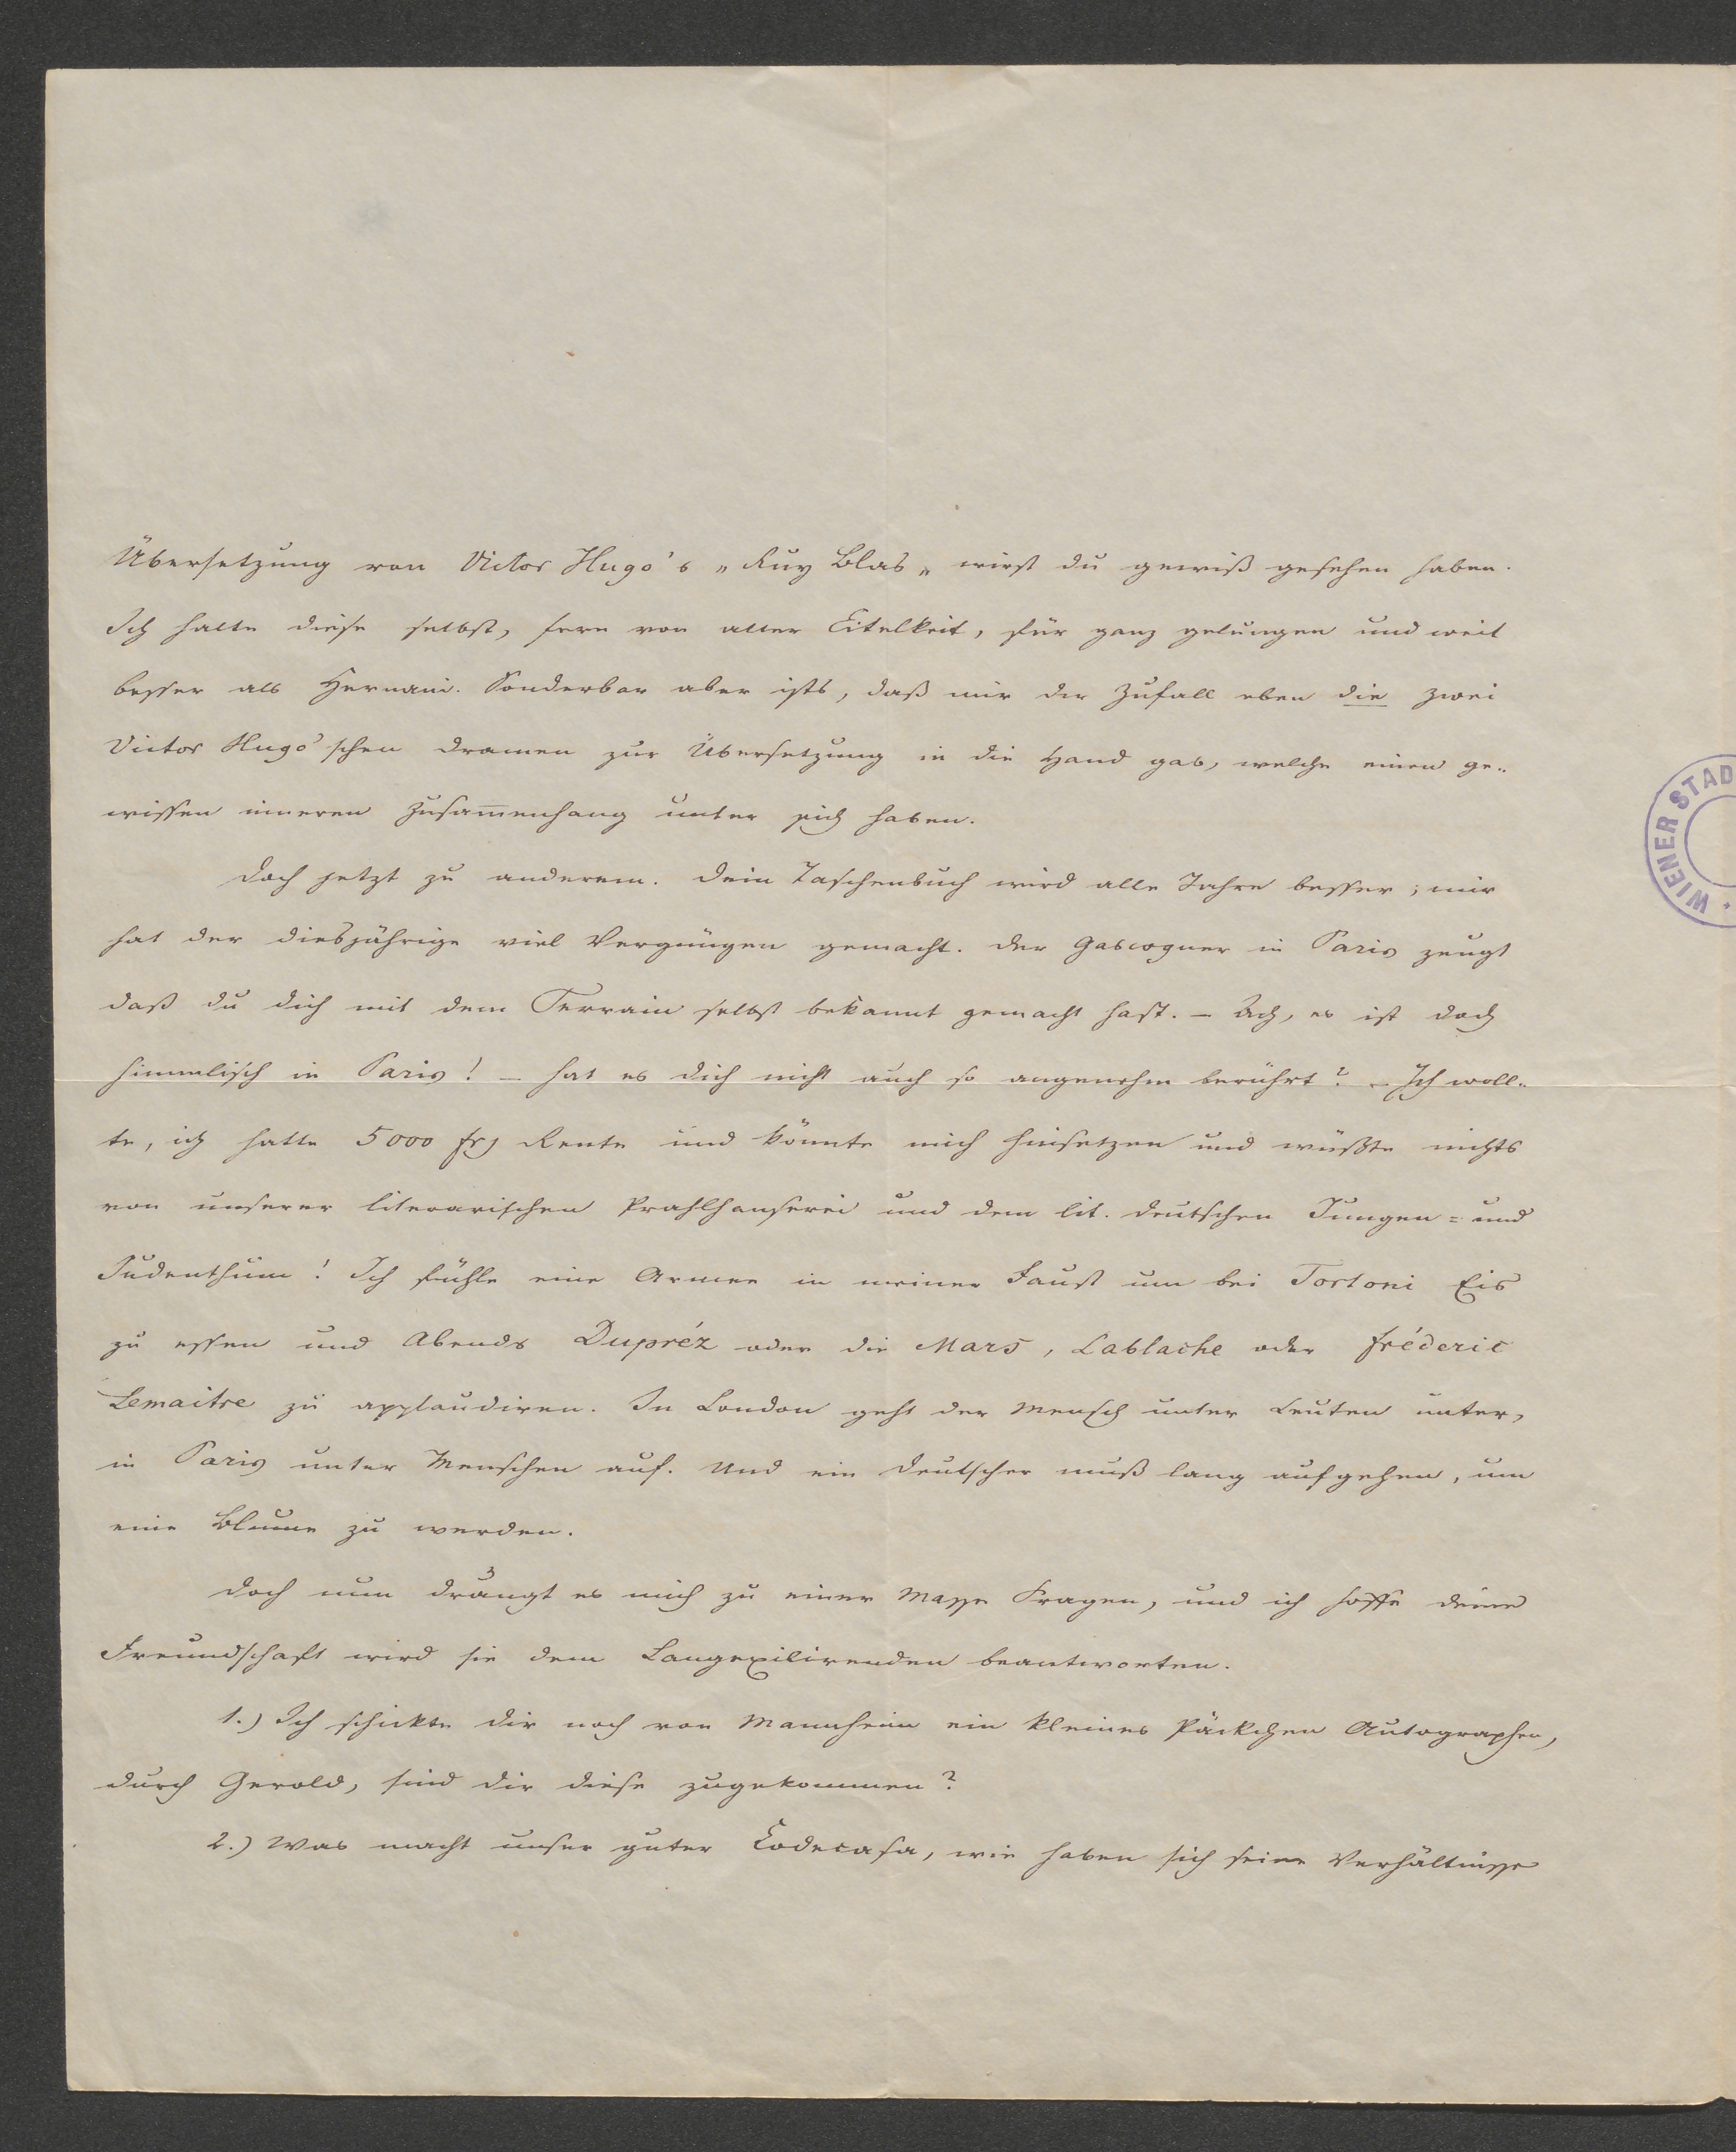 Übersetzung von Victor Hugo's „Ruy Blas„ wirst du gewiß gesehen haben.
Ich halte diese selbst, fern von aller Eitelkeit, für ganz gelungen und weit
besser als Hernani. Sonderbar aber ists, daß mir der Zufall eben die zwei
Victor Hugo'schen Dramen zur Übersetzung in die Hand gab, welche einen ge„
wissen inneren Zusam̅enhang unter sich haben.
Doch jetzt zu anderem. Dein Taschenbuch wird alle Jahre besser; mir
hat der diesjährige viel Vergnügen gemacht. Der Gascogner in Paris zeugt
daß du dich mit dem Terrain selbst bekannt gemacht hast. – Ach, es ist doch
himmlisch in Paris! – hat es dich nicht auch so angenehm berührt? – Ich woll„
te, ich hatte 5000 frs Rente und könnte mich hinsetzen und wüßte nichts
von unserer literarischen Prahlhanserei und dem lit. deutschen Jungen= und
Judenthum! Ich fühle eine Armee in meiner Faust um bei Tortoni Eis
zu essen und Abends Dupréz oder die Mars, Lablache oder fréderic
Lemaitre zu applaudiren. In London geht der Mensch unter Leuten unter,
in Paris unter Menschen auf. Und ein Deutscher muß lang aufgehen, um
eine Blume zu werden.
Doch nun drängt es mich zu einer Masse Fragen, und ich hoffe deine
Freundschaft wird sie dem Langexilirenden beantworten.
1.) Ich schickte dir noch von Mannheim ein kleines Päckchen Autographen,
durch Gerold, sind dir diese zugekommen?
2.) Was macht unser guter Codecasa, wie haben sich seine Verhältnisse
WIENER STAD